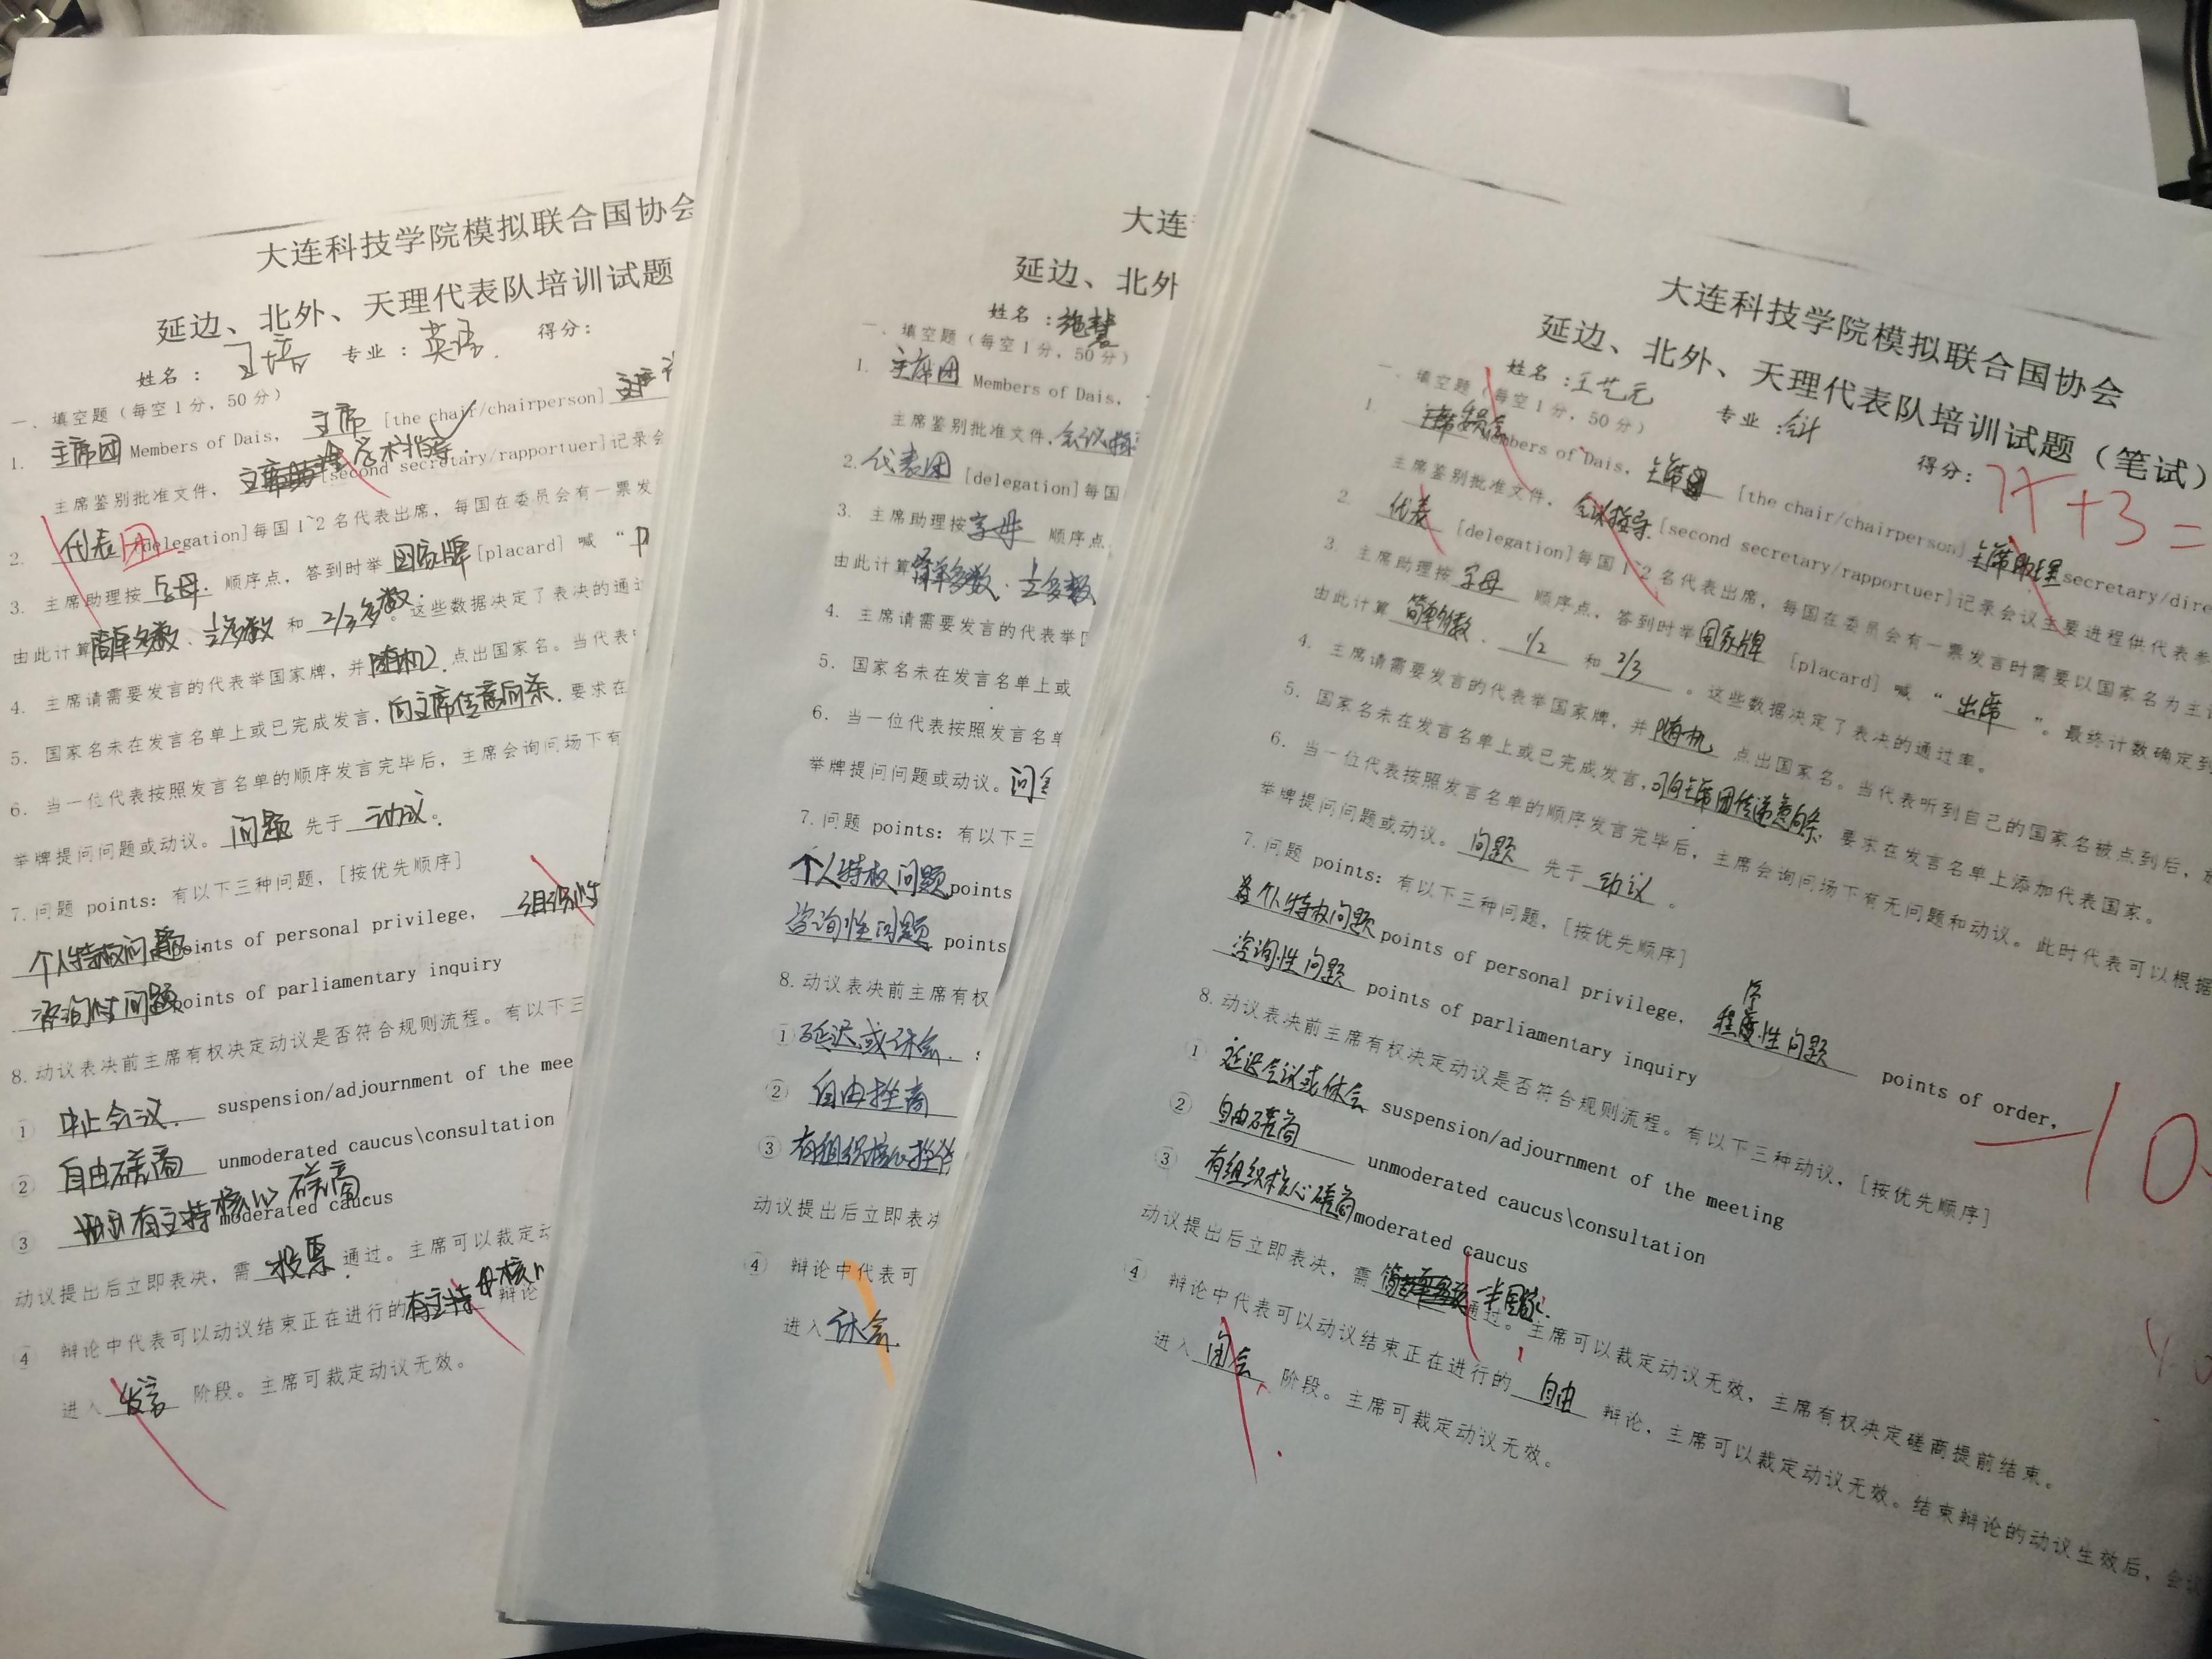 大连科技学院模拟联合国协会
延边、北外、天理代表队培训试题
姓名： 专业：英语 得分：
一、填空题（每空1分，50分）
1. 主席团 Members of Dais， 主席 [the chair/chairperson]
主席鉴别批准文件， 学术指导 [second secretary/rapportuer]记录会
2. 代表团 [delegation]每国1~2名代表出席，每国在委员会有一票发
3. 主席助理按 字母 顺序点，答到时举 国家牌 [placard] 喊 “
由此计算 简单多数、 和 2/3多数。这些数据决定了表决的通过
4. 主席请需要发言的代表举国家牌，并 随机 点出国家名。当代表
5. 国家名未在发言名单上或已完成发言， 向主席传意向条 ，要求在
6. 当一位代表按照发言名单的顺序发言完毕后，主席会询问场下有
举牌提问问题或动议。 问题 先于 动议。
7. 问题 points：有以下三种问题，[按优先顺序]
个人特权问题 points of personal privilege， 组织性
咨询性问题 points of parliamentary inquiry
8. 动议表决前主席有权决定动议是否符合规则流程。有以下三
① 中止会议 suspension/adjournment of the mee
② 自由磋商 unmoderated caucus\consultation
③ 有主持核心磋商 moderated caucus
动议提出后立即表决，需 投票 通过。主席可以裁定动
④ 辩论中代表可以动议结束正在进行的 有主持 辩论
进入 发言 阶段。主席可裁定动议无效。
大连
延边、北外
姓名：施慧
一、填空题（每空1分，50分）
1. 主席团 Members of Dais，
主席鉴别批准文件， 会议指
2. 代表团 [delegation]每国
3. 主席助理按 字母 顺序点
由此计算 简单多数、
4. 主席请需要发言的代表举
5. 国家名未在发言名单上或
6. 当一位代表按照发言名单
举牌提问问题或动议。 问
7. 问题 points：有以下三
个人特权问题 points
咨询性问题 points
8. 动议表决前主席有权
① 延迟或休会
② 自由
③ 有组织核心
动议提出后立即表决
④ 辩论中代表可
进入 休会
大连科技学院模拟联合国协会
延边、北外、天理代表队培训试题（笔试）
姓名：王艺元 专业：会计 得分： 7x+3=
一、填空题（每空1分，50分）
1. 主席委员会 Members of Dais， 主席团 [the chair/chairperson] 主席助理 secretary/dire
主席鉴别批准文件， 会议指导 [second secretary/rapportuer]记录会议主要进程供代表参
2. 代表 [delegation]每国1~2名代表出席，每国在委员会有一票发言时需要以国家名为主
3. 主席助理按 字母 顺序点，答到时举 国家牌 [placard] 喊 “ 出席 ”。最终计数确定到
由此计算 简单多数、 1/2 和 2/3 。这些数据决定了表决的通过率。
4. 主席请需要发言的代表举国家牌，并 随机 点出国家名。当代表听到自己的国家名被点到后，
5. 国家名未在发言名单上或已完成发言， 可向主席团传递意向条 ，要求在发言名单上添加代表国家。
6. 当一位代表按照发言名单的顺序发言完毕后，主席会询问场下有无问题和动议。此时代表可以根据
举牌提问问题或动议。 问题 先于 动议 。
7. 问题 points：有以下三种问题，[按优先顺序]
个人特权问题 points of personal privilege， 程序性问题 points of order，
咨询性问题 points of parliamentary inquiry
8. 动议表决前主席有权决定动议是否符合规则流程。有以下三种动议，[按优先顺序]
① 延迟会议或休会 suspension/adjournment of the meeting
② 自由磋商 unmoderated caucus\consultation
③ 有组织核心磋商 moderated caucus
动议提出后立即表决，需 半国家 通过。主席可以裁定动议无效，主席有权决定磋商提前结束。
④ 辩论中代表可以动议结束正在进行的 自由 辩论，主席可以裁定动议无效。结束辩论的动议生效后，会
进入 闭会 阶段。主席可裁定动议无效。
-10